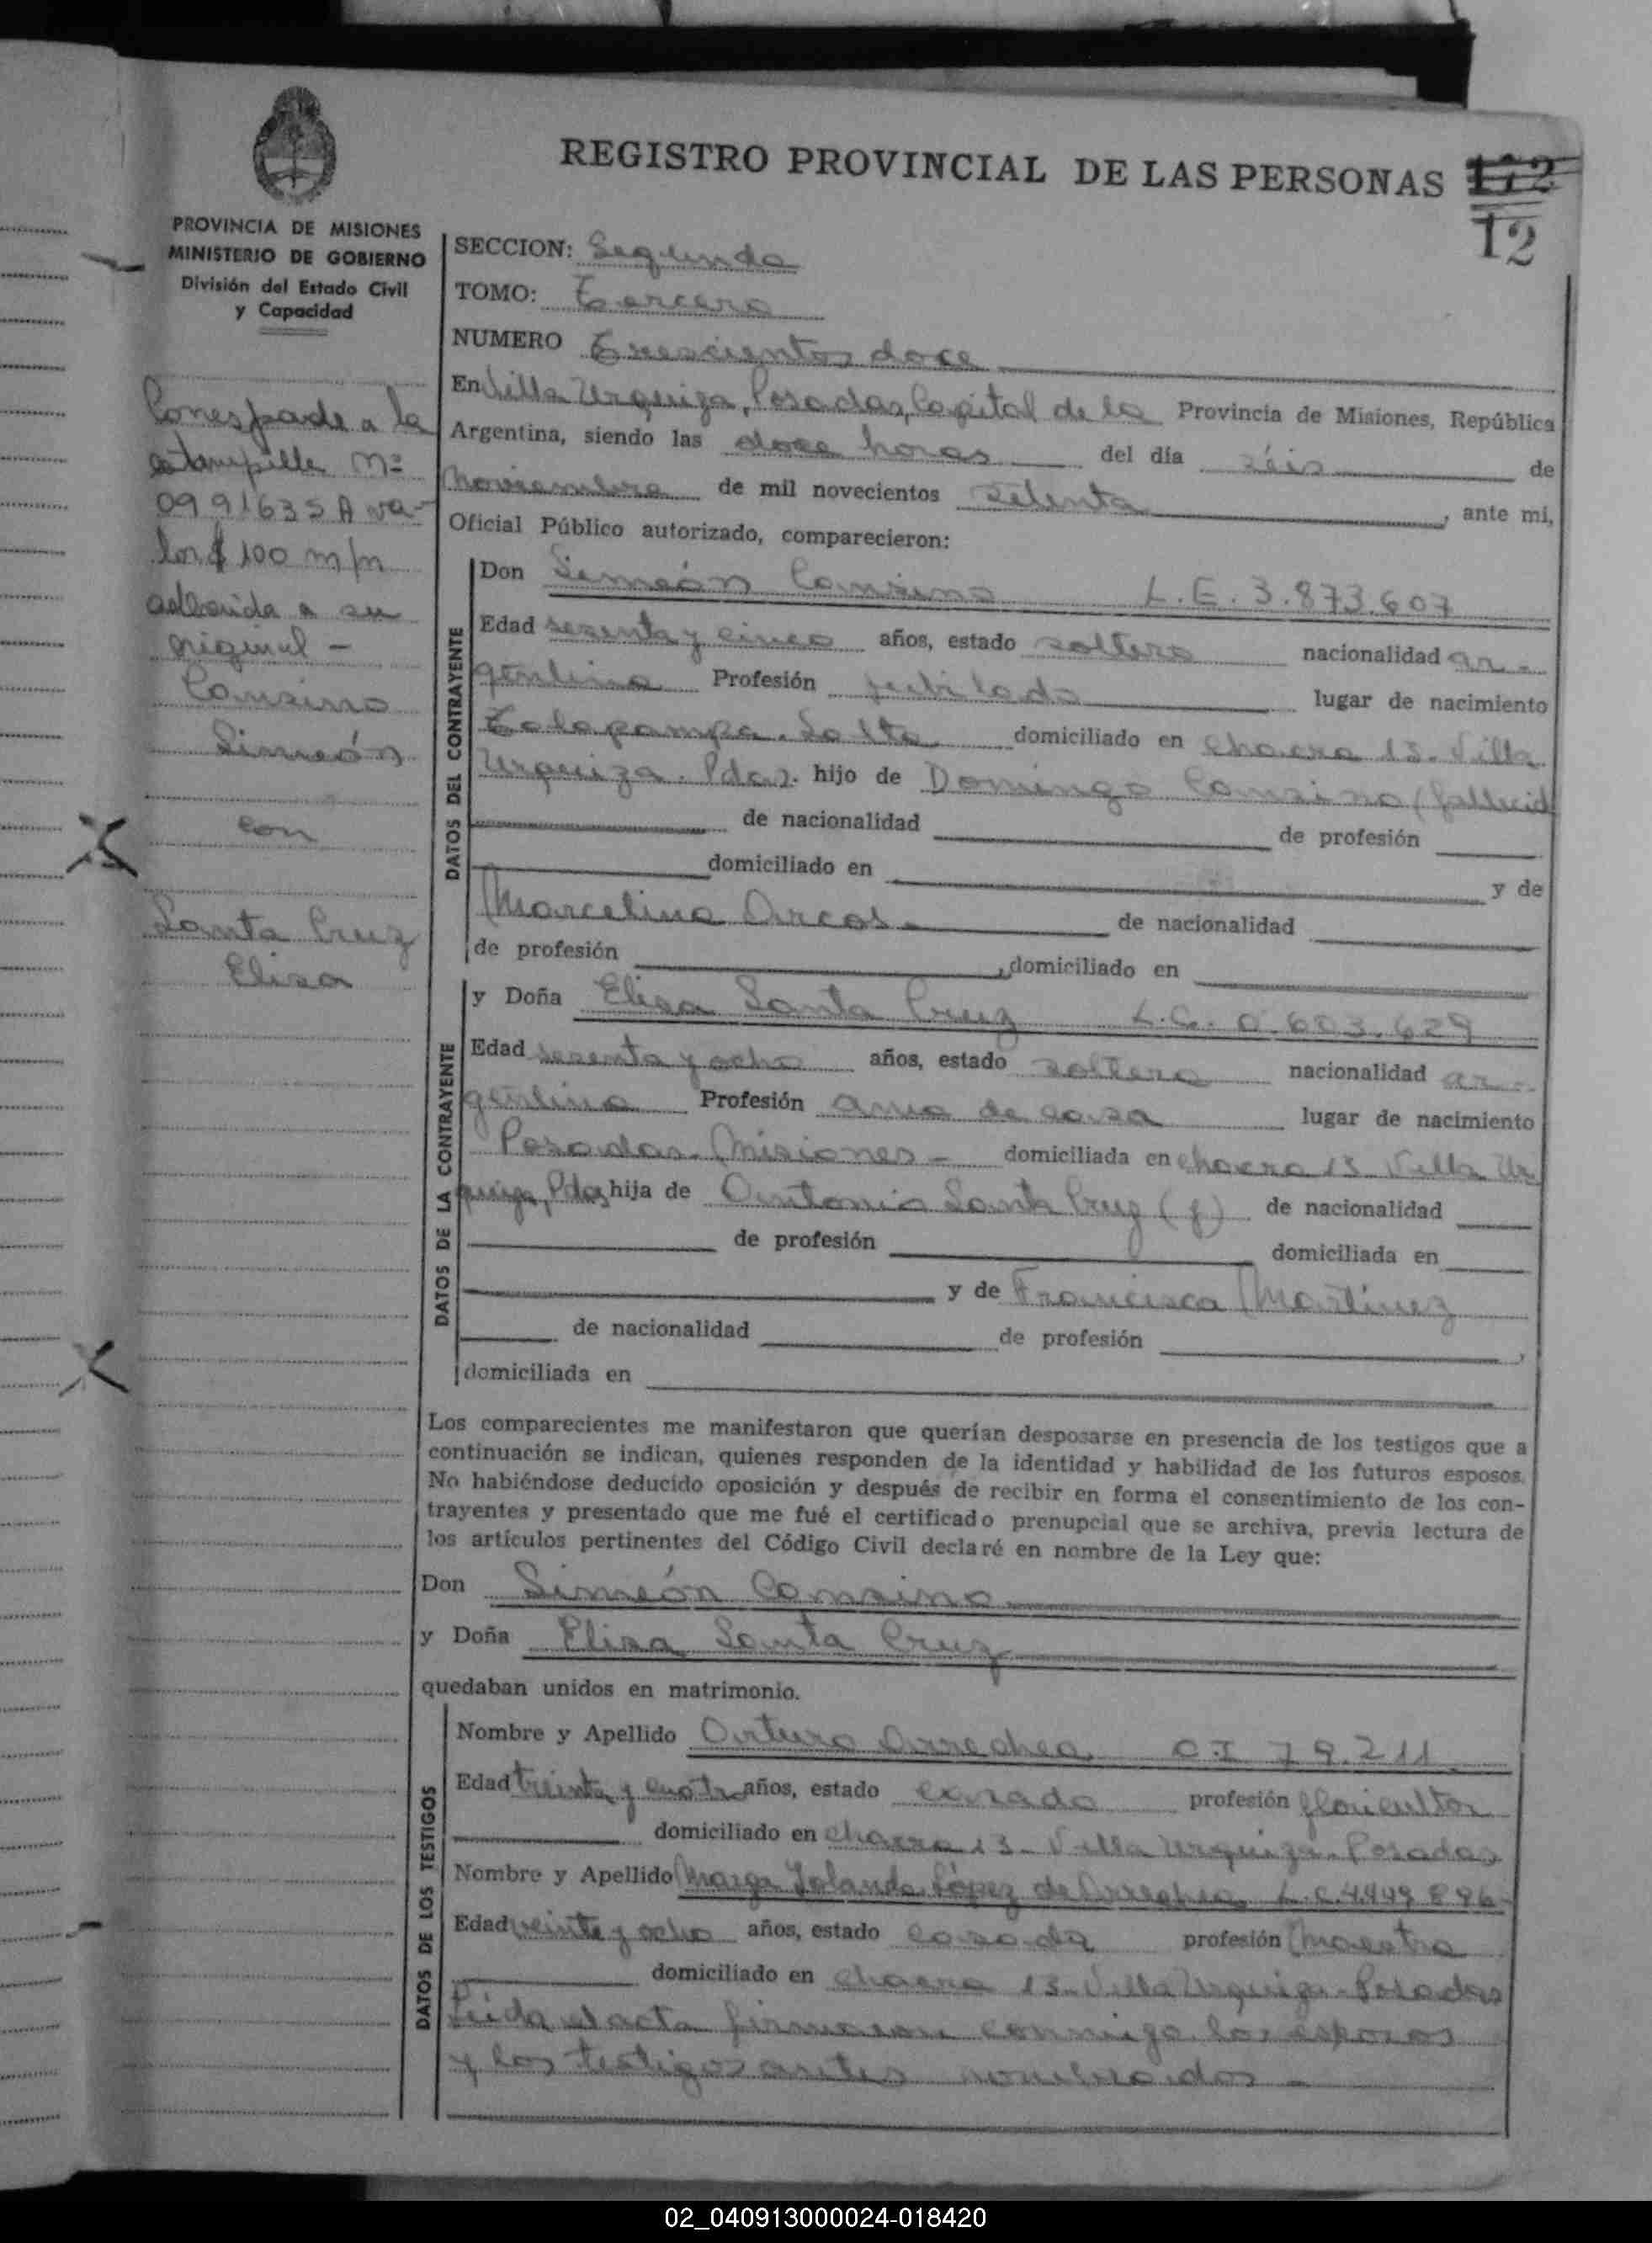 REGISTRO PROVINCIAL DE LAS PERSONAS 172
12
PROVINCIA DE MISIONES
MINISTERIO DE GOBIERNO
División del Estado Civil
y Capacidad
Corresponde a la
estampilla Nº
0991635 A va-
lor $ 100 m/n
adherida a su
original -
Cansino
Simeón
con
Santa Cruz
Elisa
SECCION: Segunda
TOMO: Tercero
NUMERO Trescientos doce
En Villa Urquiza, Posadas, Capital de la Provincia de Misiones, República
Argentina, siendo las doce horas del día séis de
Noviembre de mil novecientos setenta, ante mi,
Oficial Público autorizado, comparecieron:
DATOS DEL CONTRAYENTE
Don Simeón Cansino L.E. 3.873.607
Edad sesenta y cinco años, estado soltero nacionalidad ar-
gentina Profesión jubilado lugar de nacimiento
Talapampa. Salta domiciliado en chacra 13- Villa
Urquiza. Pdas. hijo de Domingo Cansino (fallecid
de nacionalidad de profesión
domiciliado en y de
Marcelina Arcos - de nacionalidad
de profesión , domiciliado en
DATOS DE LA CONTRAYENTE
y Doña Elisa Santa Cruz L.C. 0.603.629
Edad sesenta y ocho años, estado soltera nacionalidad ar-
gentina Profesión ama de casa lugar de nacimiento
Posadas. Misiones - domiciliada en chacra 13 Villa Ur
quiza, Pdas hija de Antonio Santa Cruz (f) de nacionalidad
de profesión domiciliada en
y de Francisca Martinez
de nacionalidad de profesión ,
domiciliada en
Los comparecientes me manifestaron que querían desposarse en presencia de los testigos que a
continuación se indican, quienes responden de la identidad y habilidad de los futuros esposos.
No habiéndose deducido oposición y después de recibir en forma el consentimiento de los con-
trayentes y presentado que me fué el certificado prenupcial que se archiva, previa lectura de
los artículos pertinentes del Código Civil declaré en nombre de la Ley que:
Don Simeón Cansino
y Doña Elisa Santa Cruz
quedaban unidos en matrimonio.
DATOS DE LOS TESTIGOS
Nombre y Apellido Arturo Arrechea C.I 79.211
Edad treinta y cuatro años, estado casado profesión floricultor
domiciliado en chacra 13- Villa Urquiza- Posadas
Nombre y Apellido Yolanda López de Arrechea L.C. 4.449.896-
Edad veinte y ocho años, estado casada profesión Maestra
domiciliado en chacra 13- Villa Urquiza- Posadas
Leida el acta firmaron conmigo los esposos
y los testigos antes nombrados -
02_040913000024-018420